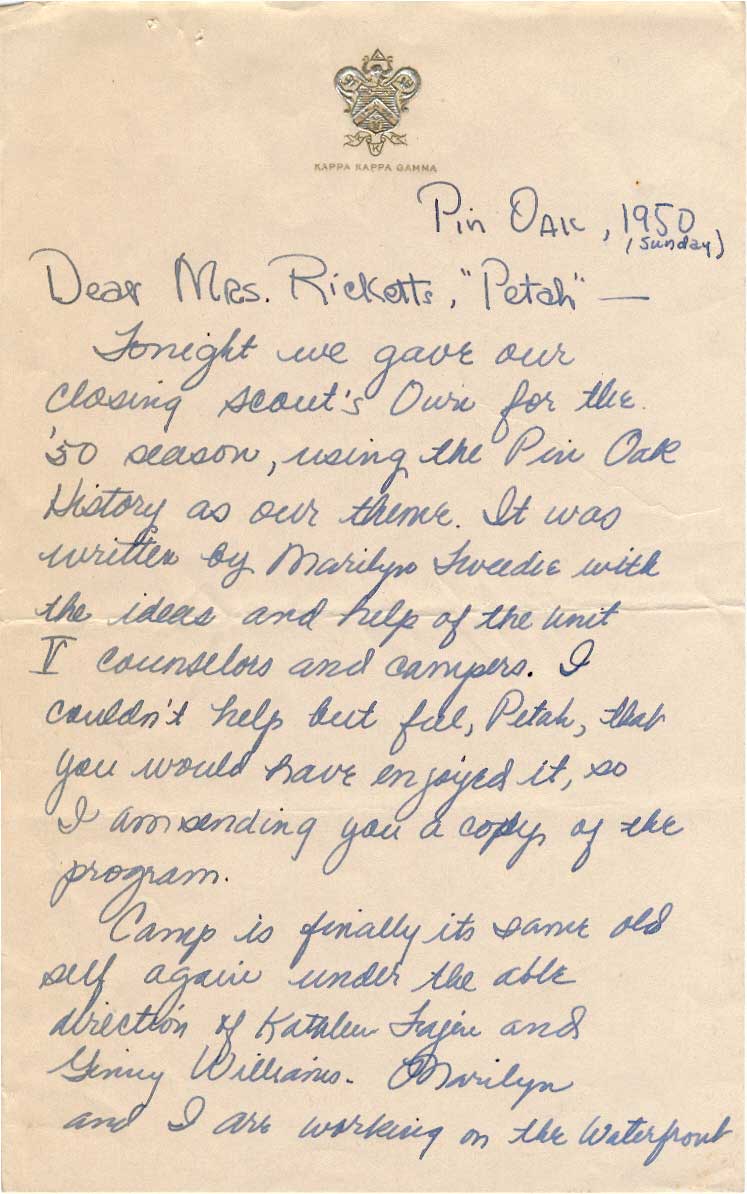 KAPPA KAPPA GAMMA
Pin Oak, 1950
(Sunday)
Dear Mrs. Ricketts, "Petah" —
Tonight we gave our
closing scout's Own for the
'50 season, using the Pin Oak
History as our theme. It was
written by Marilyn Tweedie with
the ideas and help of the unit
V counselors and campers. I
couldn't help but feel, Petah, that
you would have enjoyed it, so
I am sending you a copy of the
program.
Camp is finally its same old
self again under the able
direction of Kathleen and
Ginny Williams. Marilyn
and I are working on the Waterfront